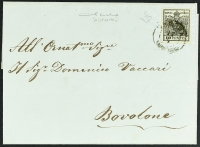 All' Ornat.mo Sig.re
Il Sig.r Domenico Vaccari
Bovolone